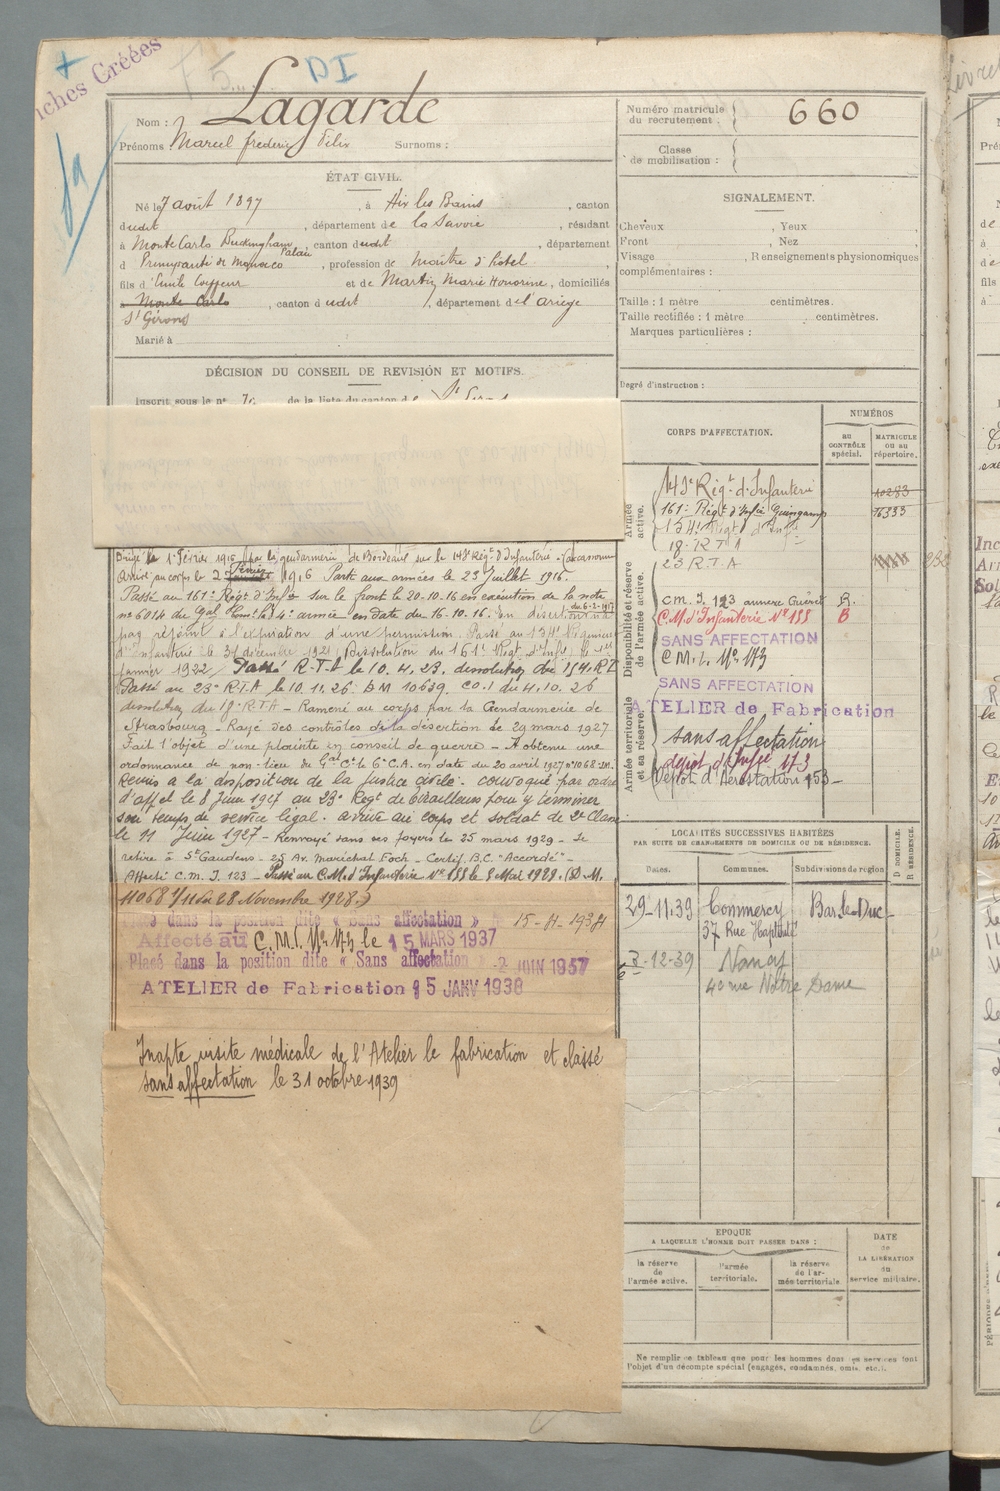 ches Créées
DI
Nom : Lagarde
Prénoms Marcel frederic Félix Surnoms :
Numéro matricule du recrutement : 660
Classe de mobilisation :
ÉTAT CIVIL.
Né le 7 août 1897, à Aix les Bains, canton
dudit, département de la Savoie, résidant
à Monte Carlo Buckingham Palais, canton dudit, département
d Principauté de Monaco, profession de maître d'hôtel,
fils d'Emile Coiffeur et de Martin Marie Honorine, domiciliés
à Monte Carlo, canton dudit, département de l'ariège
St Girons
Marié à
SIGNALEMENT.
Cheveux , Yeux ,
Front , Nez ,
Visage , Renseignements physionomiques
complémentaires :
Taille : 1 mètre centimètres.
Taille rectifiée : 1 mètre centimètres.
Marques particulières :
Degré d'instruction :
DÉCISION DU CONSEIL DE REVISION ET MOTIFS.
Inscrit sous le n° de la liste du canton de
Dirigé le 1er Février 1916 par la gendarmerie de Bordeaux sur le 143e Régt d'Infanterie Carcassonne
Arrivé au corps le 2 Février 1916 Parti aux armées le 23 Juillet 1916.
Passé au 161e Régt d'Infie sur le front le 20.10.16 en exécution de la note
n° 6014 du Gal Comt la 4e armée en date du 16.10.16. En désertion du 6-2-1917
pas rejoint à l'expiration d'une permission. Passé au 154e Régiment
d'infanterie le 31 décembre 1921, Dissolution du 161e Régt d'Infie le 1er
janvier 1922. Passé R.T.A le 10.4.23. dissolution du 154 R.I.
Passé au 23e R.T.A le 10.11.26 DM 10639. CO.1 du 4.10.26
dissolution du 18e RTA - Ramené au corps par la Gendarmerie de
Strasbourg - Rayé des contrôles de la désertion le 29 mars 1927
Fait l'objet d'une plainte en conseil de guerre - A obtenu une
ordonnance de non-lieu du Gal Ct le 6e C.A. en date du 20 avril 1927 n° 1068 DM.
Remis à la disposition de la Justice civile. convoqué par ordre
d'appel le 8 Juin 1927 au 23e Régt de tirailleurs pour y terminer
son temps de service légal. arrivé au corps et soldat de 2e Classe
le 11 Juin 1927 - Renvoyé dans ses foyers le 25 mars 1929 - Se
retire à St Gaudens - 25 Av. Maréchal Foch - Certif. B.C. "Accordé" -
Affecté C.M.I. 123 - Passé au C.M. d'Infanterie N° 155 le 5 Mai 1929. (D.M.
11068 1/11 du 28 Novembre 1928.)
dans la position dite « Sans affectation » 15-4-1934
Affecté au C.M.I. N° 173 le 15 MARS 1937
Placé dans la position dite « Sans affectation » -2 JUIN 1937
ATELIER de Fabrication 5 JANV 1938
Inapte visite médicale de l'Atelier de fabrication et classé
sans affectation le 31 octobre 1939
CORPS D'AFFECTATION.
NUMÉROS
AU CONTRÔLE spécial.
MATRICULE ou au répertoire.
Armée active.
143e Régt d'Infanterie 10283
161e Régt d'Infie Guingamp 16333
154e Régt d'Infie
18e R T A
Disponibilité et réserve de l'armée active.
23 R.T.A
CM. I. 123 annexe Guéret R.
C.M. d'Infanterie N° 155 B
SANS AFFECTATION
C M. I. N° 173
Armée territoriale et sa réserve.
SANS AFFECTATION
ATELIER de Fabrication
sans affectation
dépot d'Infie 173
Dépot d'Aérostation 153
LOCALITÉS SUCCESSIVES HABITÉES
PAR SUITE DE CHANGEMENTS DE DOMICILE OU DE RÉSIDENCE.
D. DOMICILE. R. RÉSIDENCE.
Dates. Communes. Subdivisions de région
29-11.39 Commercy Bar le Duc
37 Rue
7-12-39 Nancy
40 rue Notre Dame
EPOQUE
A LAQUELLE L'HOMME DOIT PASSER DANS :
la réserve de l'armée active.
l'armée territoriale.
la réserve de l'armée territoriale.
DATE DE LA LIBÉRATION du service militaire.
Ne remplir ce tableau que pour les hommes dont les services font
l'objet d'un décompte spécial (engagés, condamnés, omis, etc.).